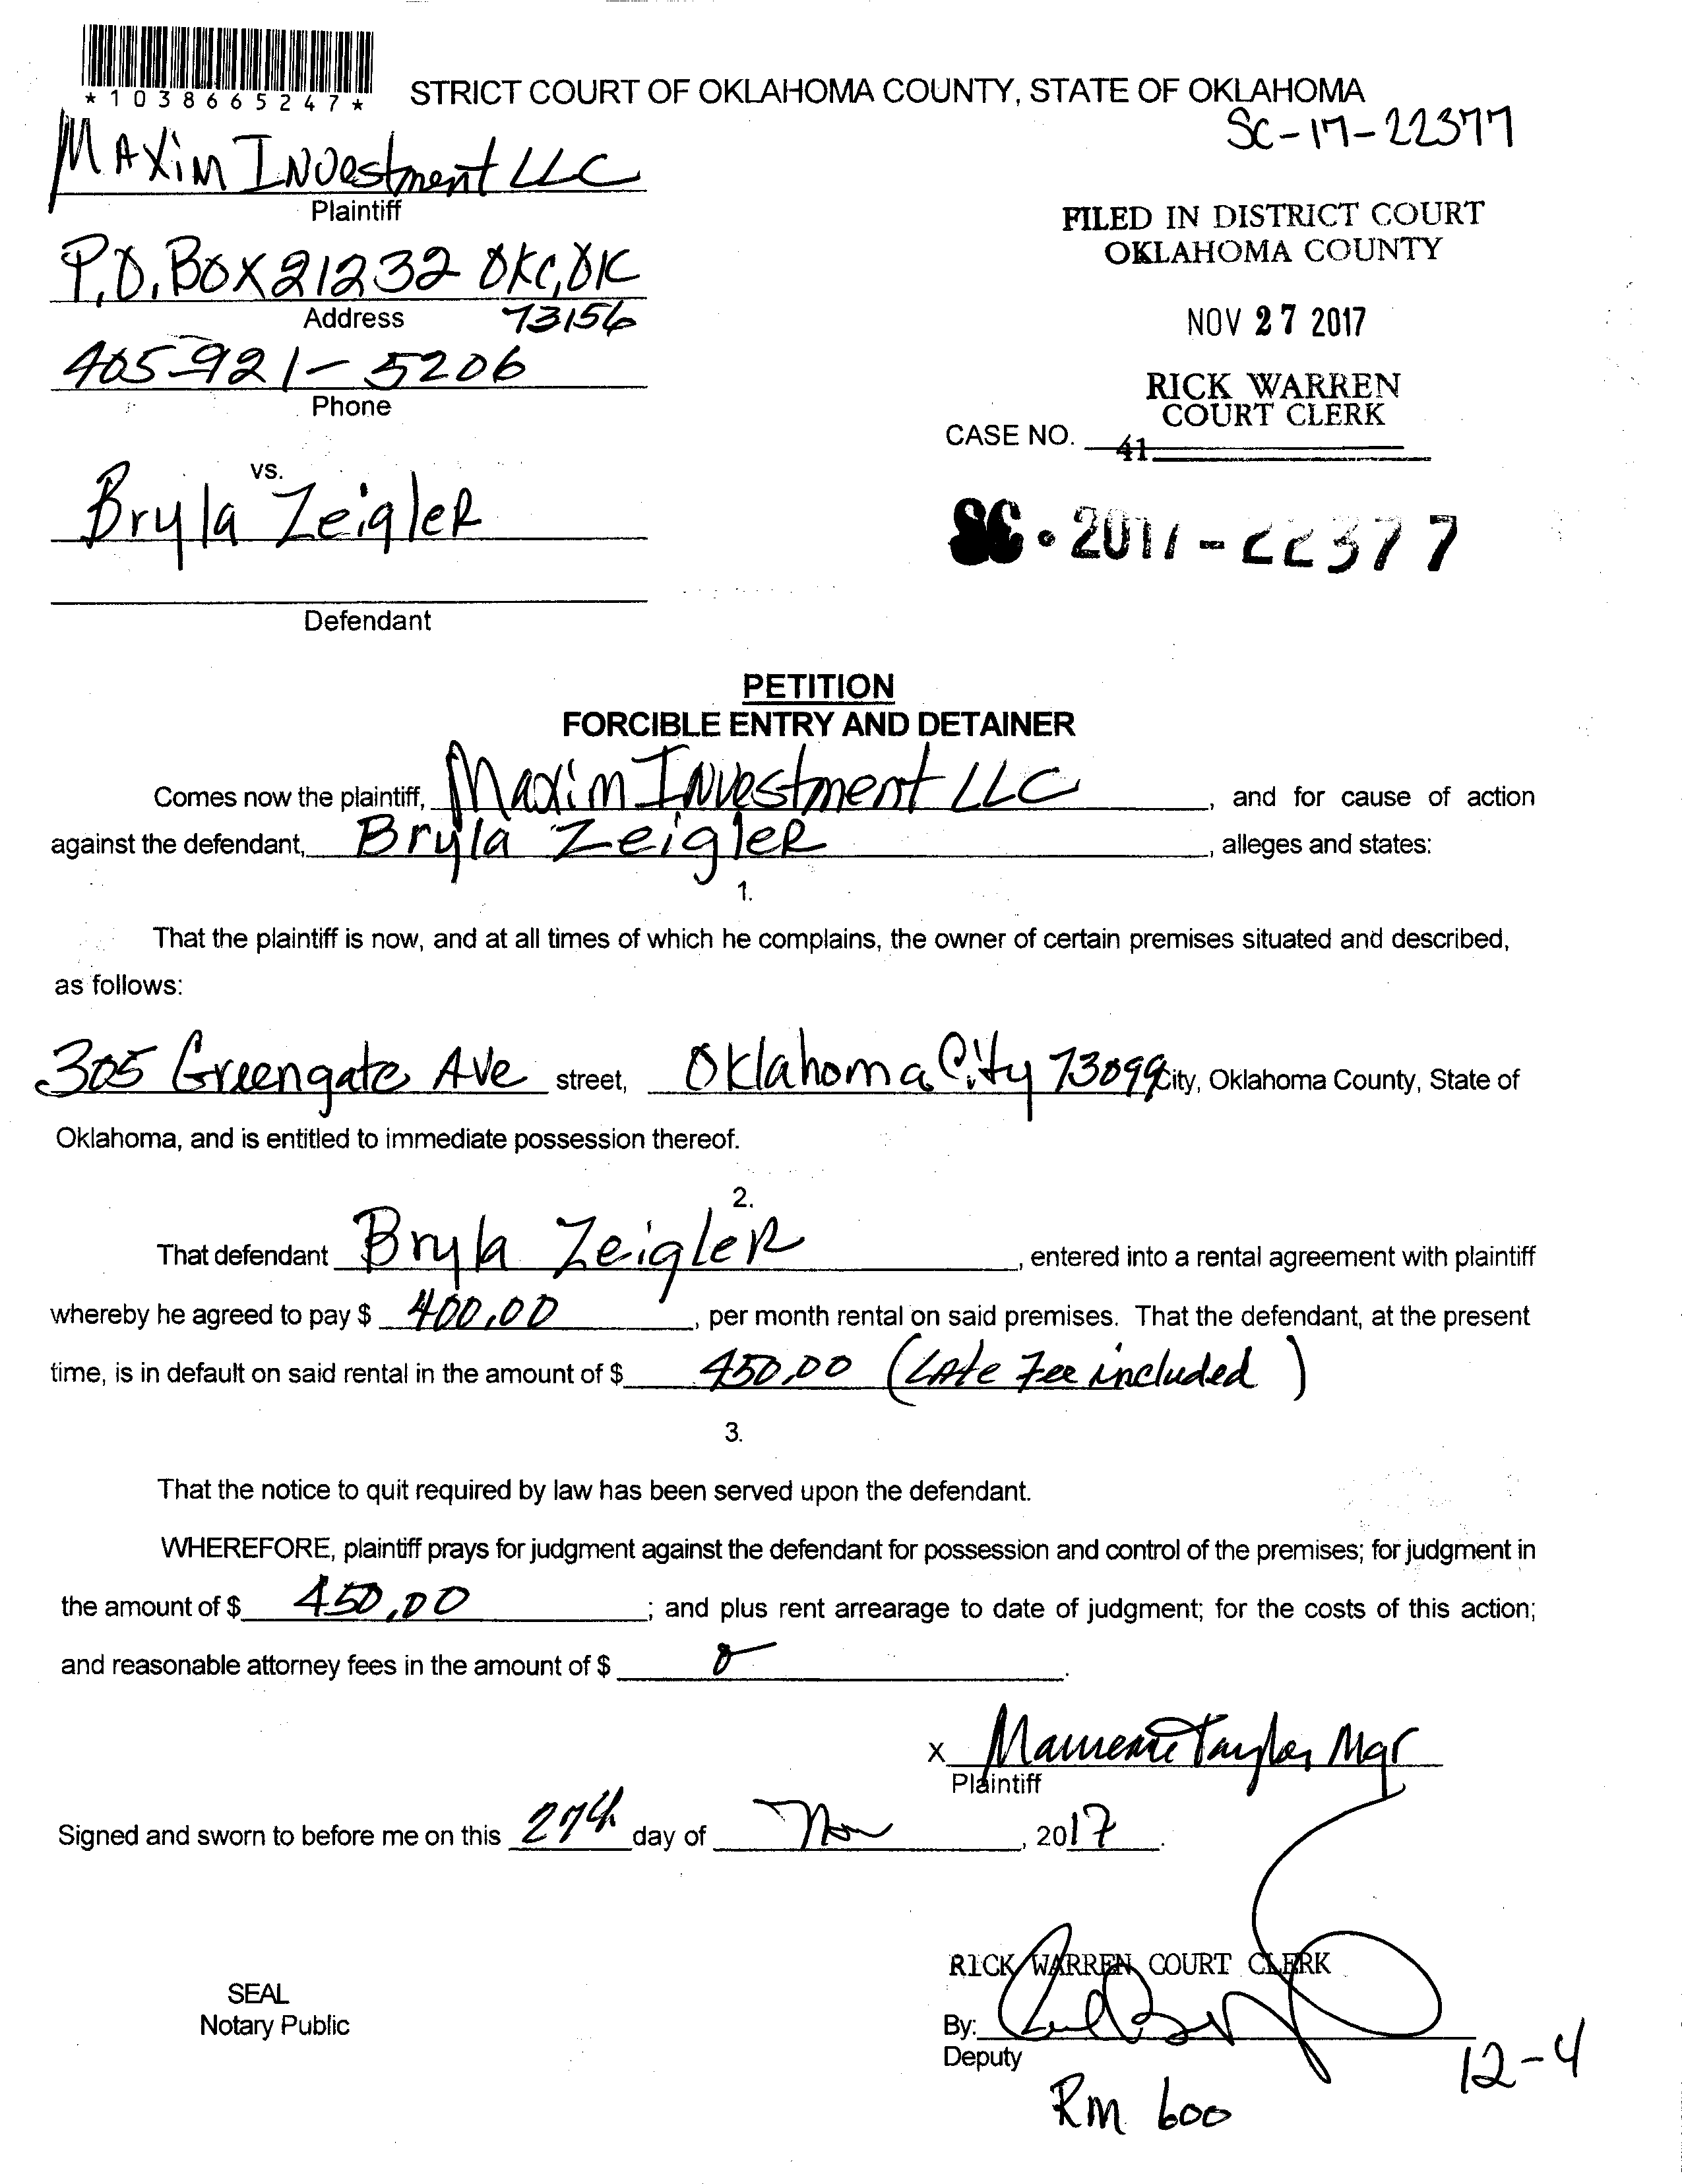 *1038665247*
STRICT COURT OF OKLAHOMA COUNTY, STATE OF OKLAHOMA
SC-17-22377
Maxim Investment LLC
Plaintiff
FILED IN DISTRICT COURT
OKLAHOMA COUNTY
P.O. Box 21232 OKC, OK
Address 73156
NOV 27 2017
405-921-5206
Phone
RICK WARREN
COURT CLERK
CASE NO.
41
vs.
Bryla Zeigler
SC-2017-22377
Defendant
PETITION
FORCIBLE ENTRY AND DETAINER
Comes now the plaintiff, Maxim Investment LLC, and for cause of action
against the defendant, Bryla Zeigler, alleges and states:
1.
That the plaintiff is now, and at all times of which he complains, the owner of certain premises situated and described,
as follows:
305 Greengate Ave street, Oklahoma City 73099 City, Oklahoma County, State of
Oklahoma, and is entitled to immediate possession thereof.
2.
That defendant Bryla Zeigler, entered into a rental agreement with plaintiff
whereby he agreed to pay $ 400.00, per month rental on said premises. That the defendant, at the present
time, is in default on said rental in the amount of $ 450.00 (Late Fee included)
3.
That the notice to quit required by law has been served upon the defendant.
WHEREFORE, plaintiff prays for judgment against the defendant for possession and control of the premises; for judgment in
the amount of $ 450.00; and plus rent arrearage to date of judgment; for the costs of this action;
and reasonable attorney fees in the amount of $ 0.
x Maureene Taylor Mgr
Plaintiff
Signed and sworn to before me on this 27th day of Nov, 2017.
RICK WARREN COURT CLERK
SEAL
Notary Public
By:
Deputy
12-4
Rm 600